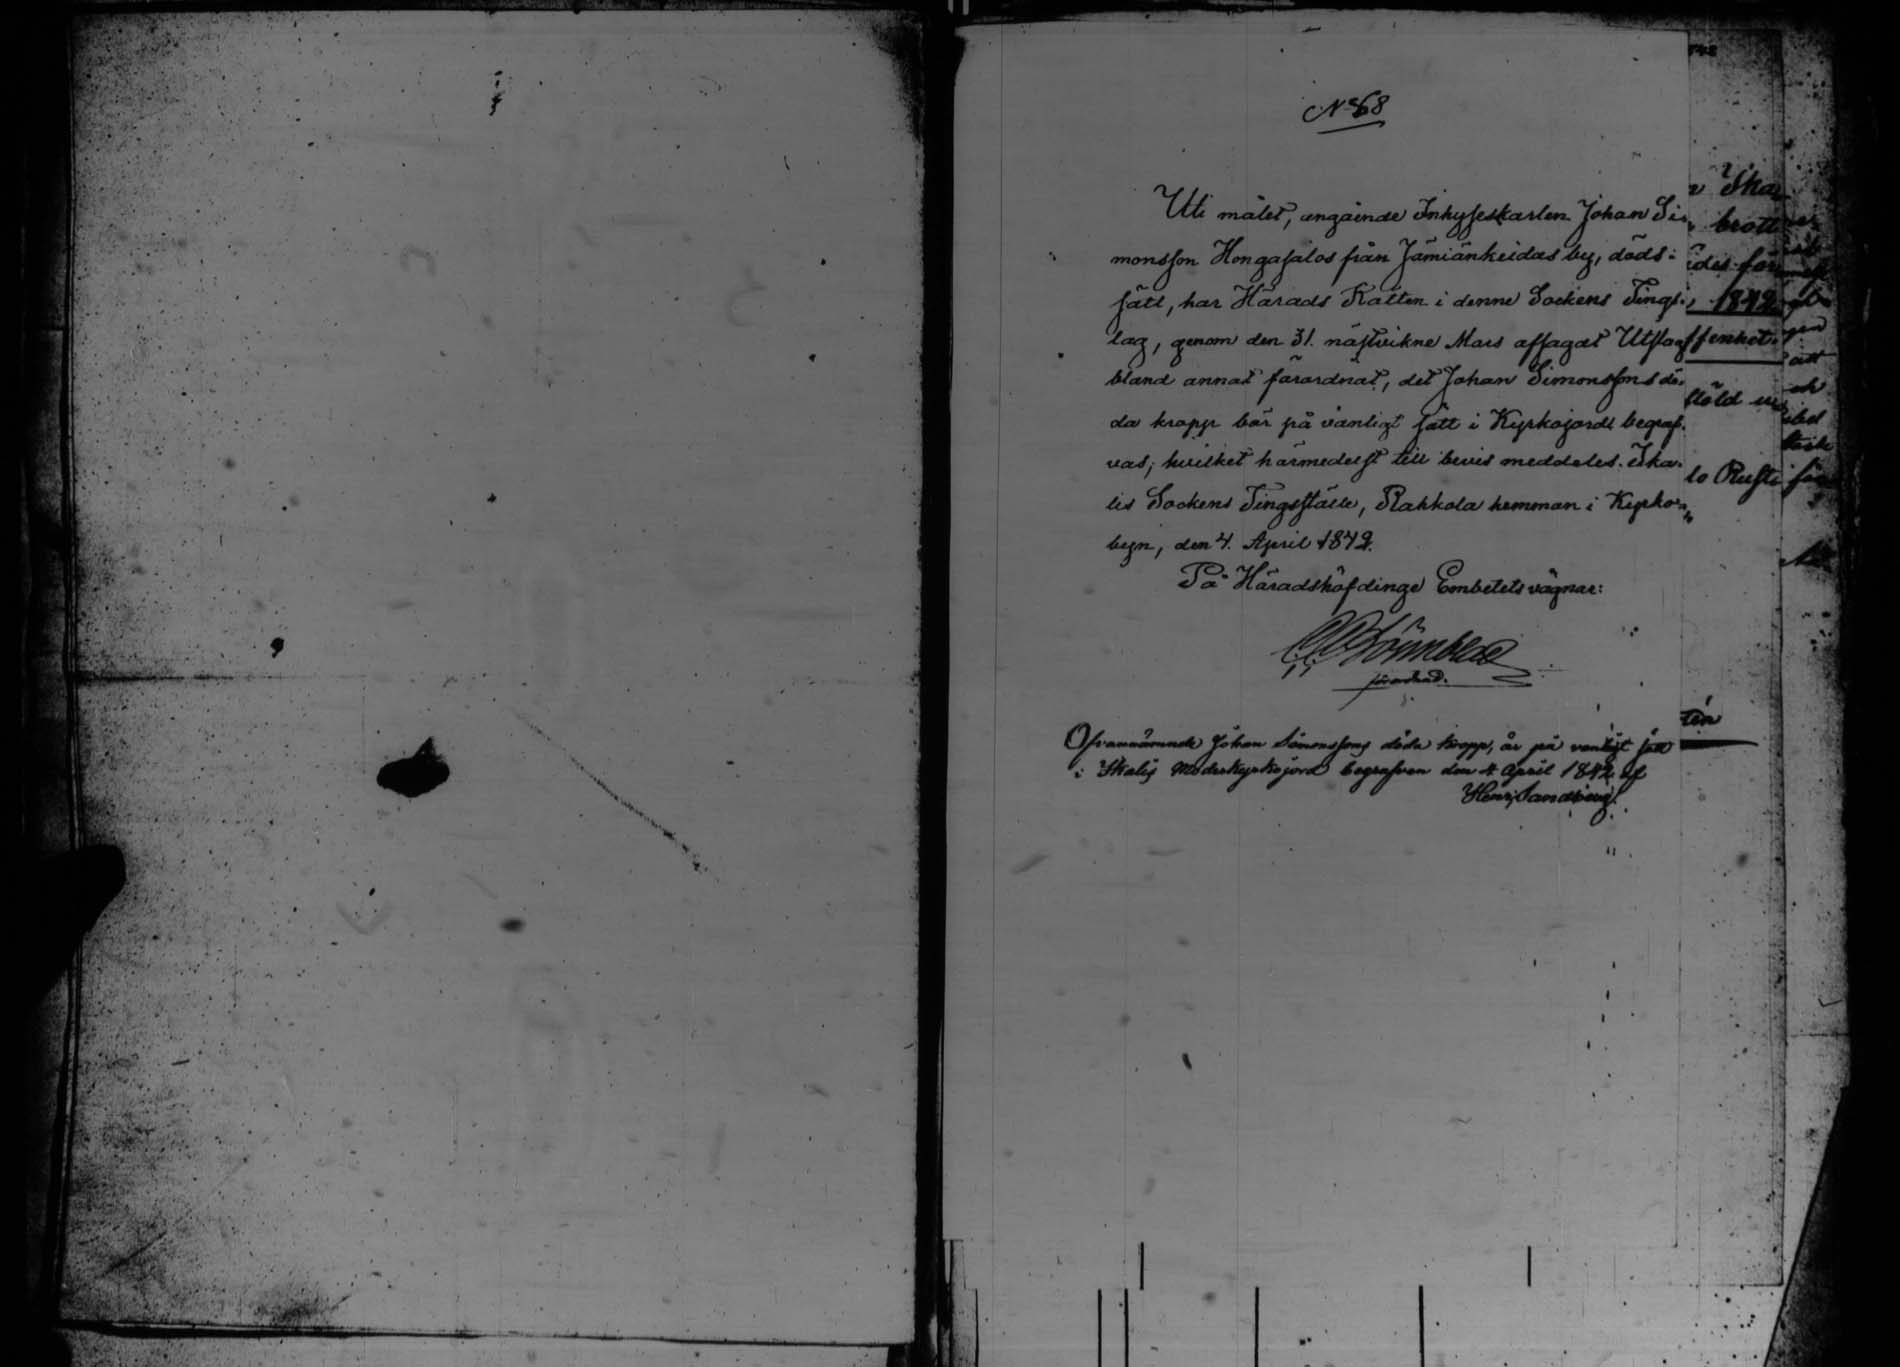 No 68
Uti målet, angående Inhyseskarlen Johan Si-
monsson Hongasalos från Jämiänkeidas by, döds-
sätt, har Härads Rätten i denne Sockens Tings-
lag, genom den 31. nästvikne Mars afsagdt Utslag
bland annat förordnat, det Johan Simonssons dö-
da kropp bör på vanligt sätt i Kyrkojord begraf-
vas; hvilket härmedelst till bevis meddeles. Ika-
lis Sockens Tingsställe, Rahkola hemman i Kyrko-
byn, den 4. April 1842.
På Häradshöfdinge Embetets vägnar:
förordnad.
Ofvannämnde Johan Simonssons döda kropp, är på vanligt sätt
i Ikalis Moderkyrkojord begrafven den 4 April 1842 af
Henr. Sandberg.
Ika
brott
ädes för
1842
ffenhet
stöld
lo Rusti
för
att